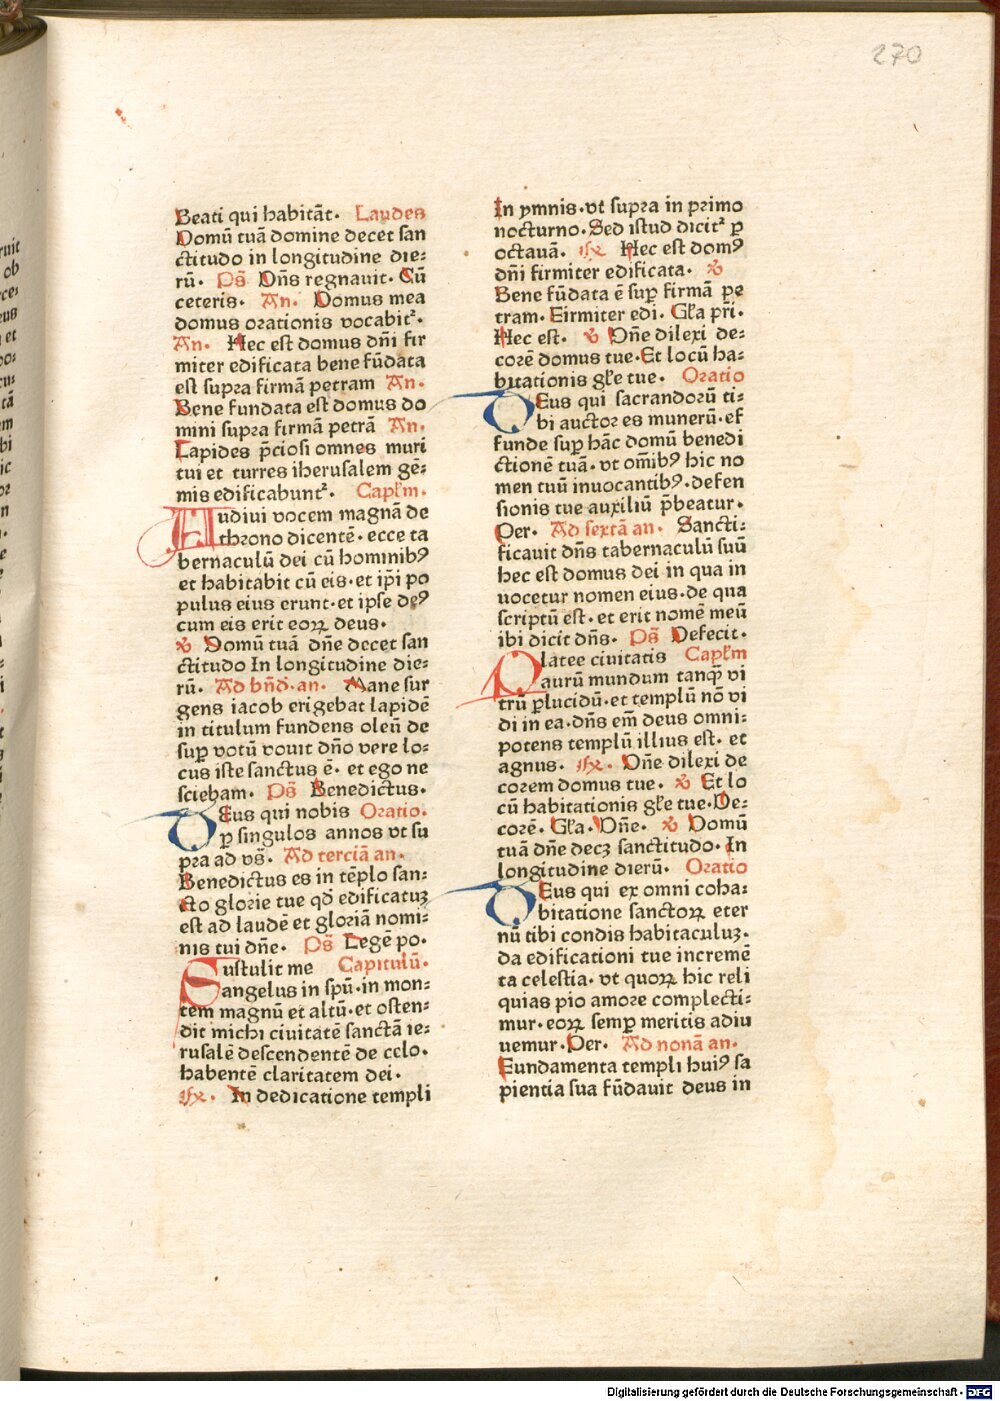 270
Beati qui habitāt. Laudes
Domū tuā domine decet san
ctitudo in longitudine die⸗
rū. Ps̄ Dn̄s regnauit. Cū
ceteris. An. Domus mea
domus orationis vocabit᷑.
An. Hec est domus dn̄i fir
miter edificata bene fūdata
est supra firmā petram An.
Bene fundata est domus do
mini supra firmā petrā An.
Lapides p̄ciosi omnes muri
tui et turres iherusalem gē⸗
mis edificabunt᷑. Capl̄m.
Audiui vocem magnā de
throno dicentē. ecce ta
bernaculū dei cū hominibꝰ
et habitabit cū eis. et ip̄i po
pulus eius erunt. et ipse deꝰ
cum eis erit eoꝝ deus.
℣ Domū tuā dn̄e decet san
ctitudo In longitudine die⸗
rū. Ad bn̄d. an. Mane sur
gens iacob erigebat lapidē
in titulum fundens oleū de
suꝑ votū vouit dn̄o vere lo⸗
cus iste sanctus ē. et ego ne
sciebam. Ps̄ Benedictus.
Deus qui nobis Oratio.
ꝑ singulos annos vt su
pra ad vs̄. Ad terciā an.
Benedictus es in tēplo san⸗
cto glorie tue qd̄ edificatuꝫ
est ad laudē et gloriā nomi⸗
nis tui dn̄e. Ps̄ Legē po.
Sustulit me Capitulū.
angelus in spū. in mon⸗
tem magnū et altū. et osten⸗
dit michi ciuitatē sanctā ie⸗
rusalē descendentē de celo.
habentē claritatem dei.
℟. In dedicatione templi
In ymnis. vt supra in primo
nocturno. Sed istud dicit᷑ ꝑ
octauā. ℟ Hec est domꝰ
dn̄i firmiter edificata. ℣
Bene fūdata ē suꝑ firmā pe
tram. Firmiter edi. Gl̄a pr̄i.
Hec est. ℣ Dn̄e dilexi de⸗
corē domus tue. Et locū ha⸗
bitationis gl̄e tue. Oratio
Deus qui sacrandorū ti⸗
bi auctor es munerū. ef
funde suꝑ hāc domū benedi
ctionē tuā. vt om̄ibꝰ hic no
men tuū inuocantibꝰ. defen
sionis tue auxiliū p̄beatur.
Per. Ad sextā an. Sancti⸗
ficauit dn̄s tabernaculū suū
hec est domus dei in qua in
uocetur nomen eius. de qua
scriptū est. et erit nomē meū
ibi dicit dn̄s. Ps̄ Defecit.
Platee ciuitatis Capl̄m
aurū mundum tanꝙ vi
trū ꝑlucidū. et templū nō vi
di in ea. dn̄s em̄ deus omni⸗
potens templū illius est. et
agnus. ℟. Dn̄e dilexi de
corem domus tue. ℣ Et lo
cū habitationis gl̄e tue. De⸗
corē. Gl̄a. Dn̄e. ℣ Domū
tuā dn̄e decꝫ sanctitudo. In
longitudine dierū. Oratio
Deus qui ex omni coha⸗
bitatione sanctoꝝ eter
nū tibi condis habitaculuꝫ.
da edificationi tue incremē
ta celestia. vt quoꝝ hic reli
quias pio amore complecti⸗
mur. eoꝝ semꝑ meritis adiu
uemur. Per. Ad nonā an.
Fundamenta templi huiꝰ sa
pientia sua fūdauit deus in
Digitalisierung gefördert durch die Deutsche Forschungsgemeinschaft - DFG